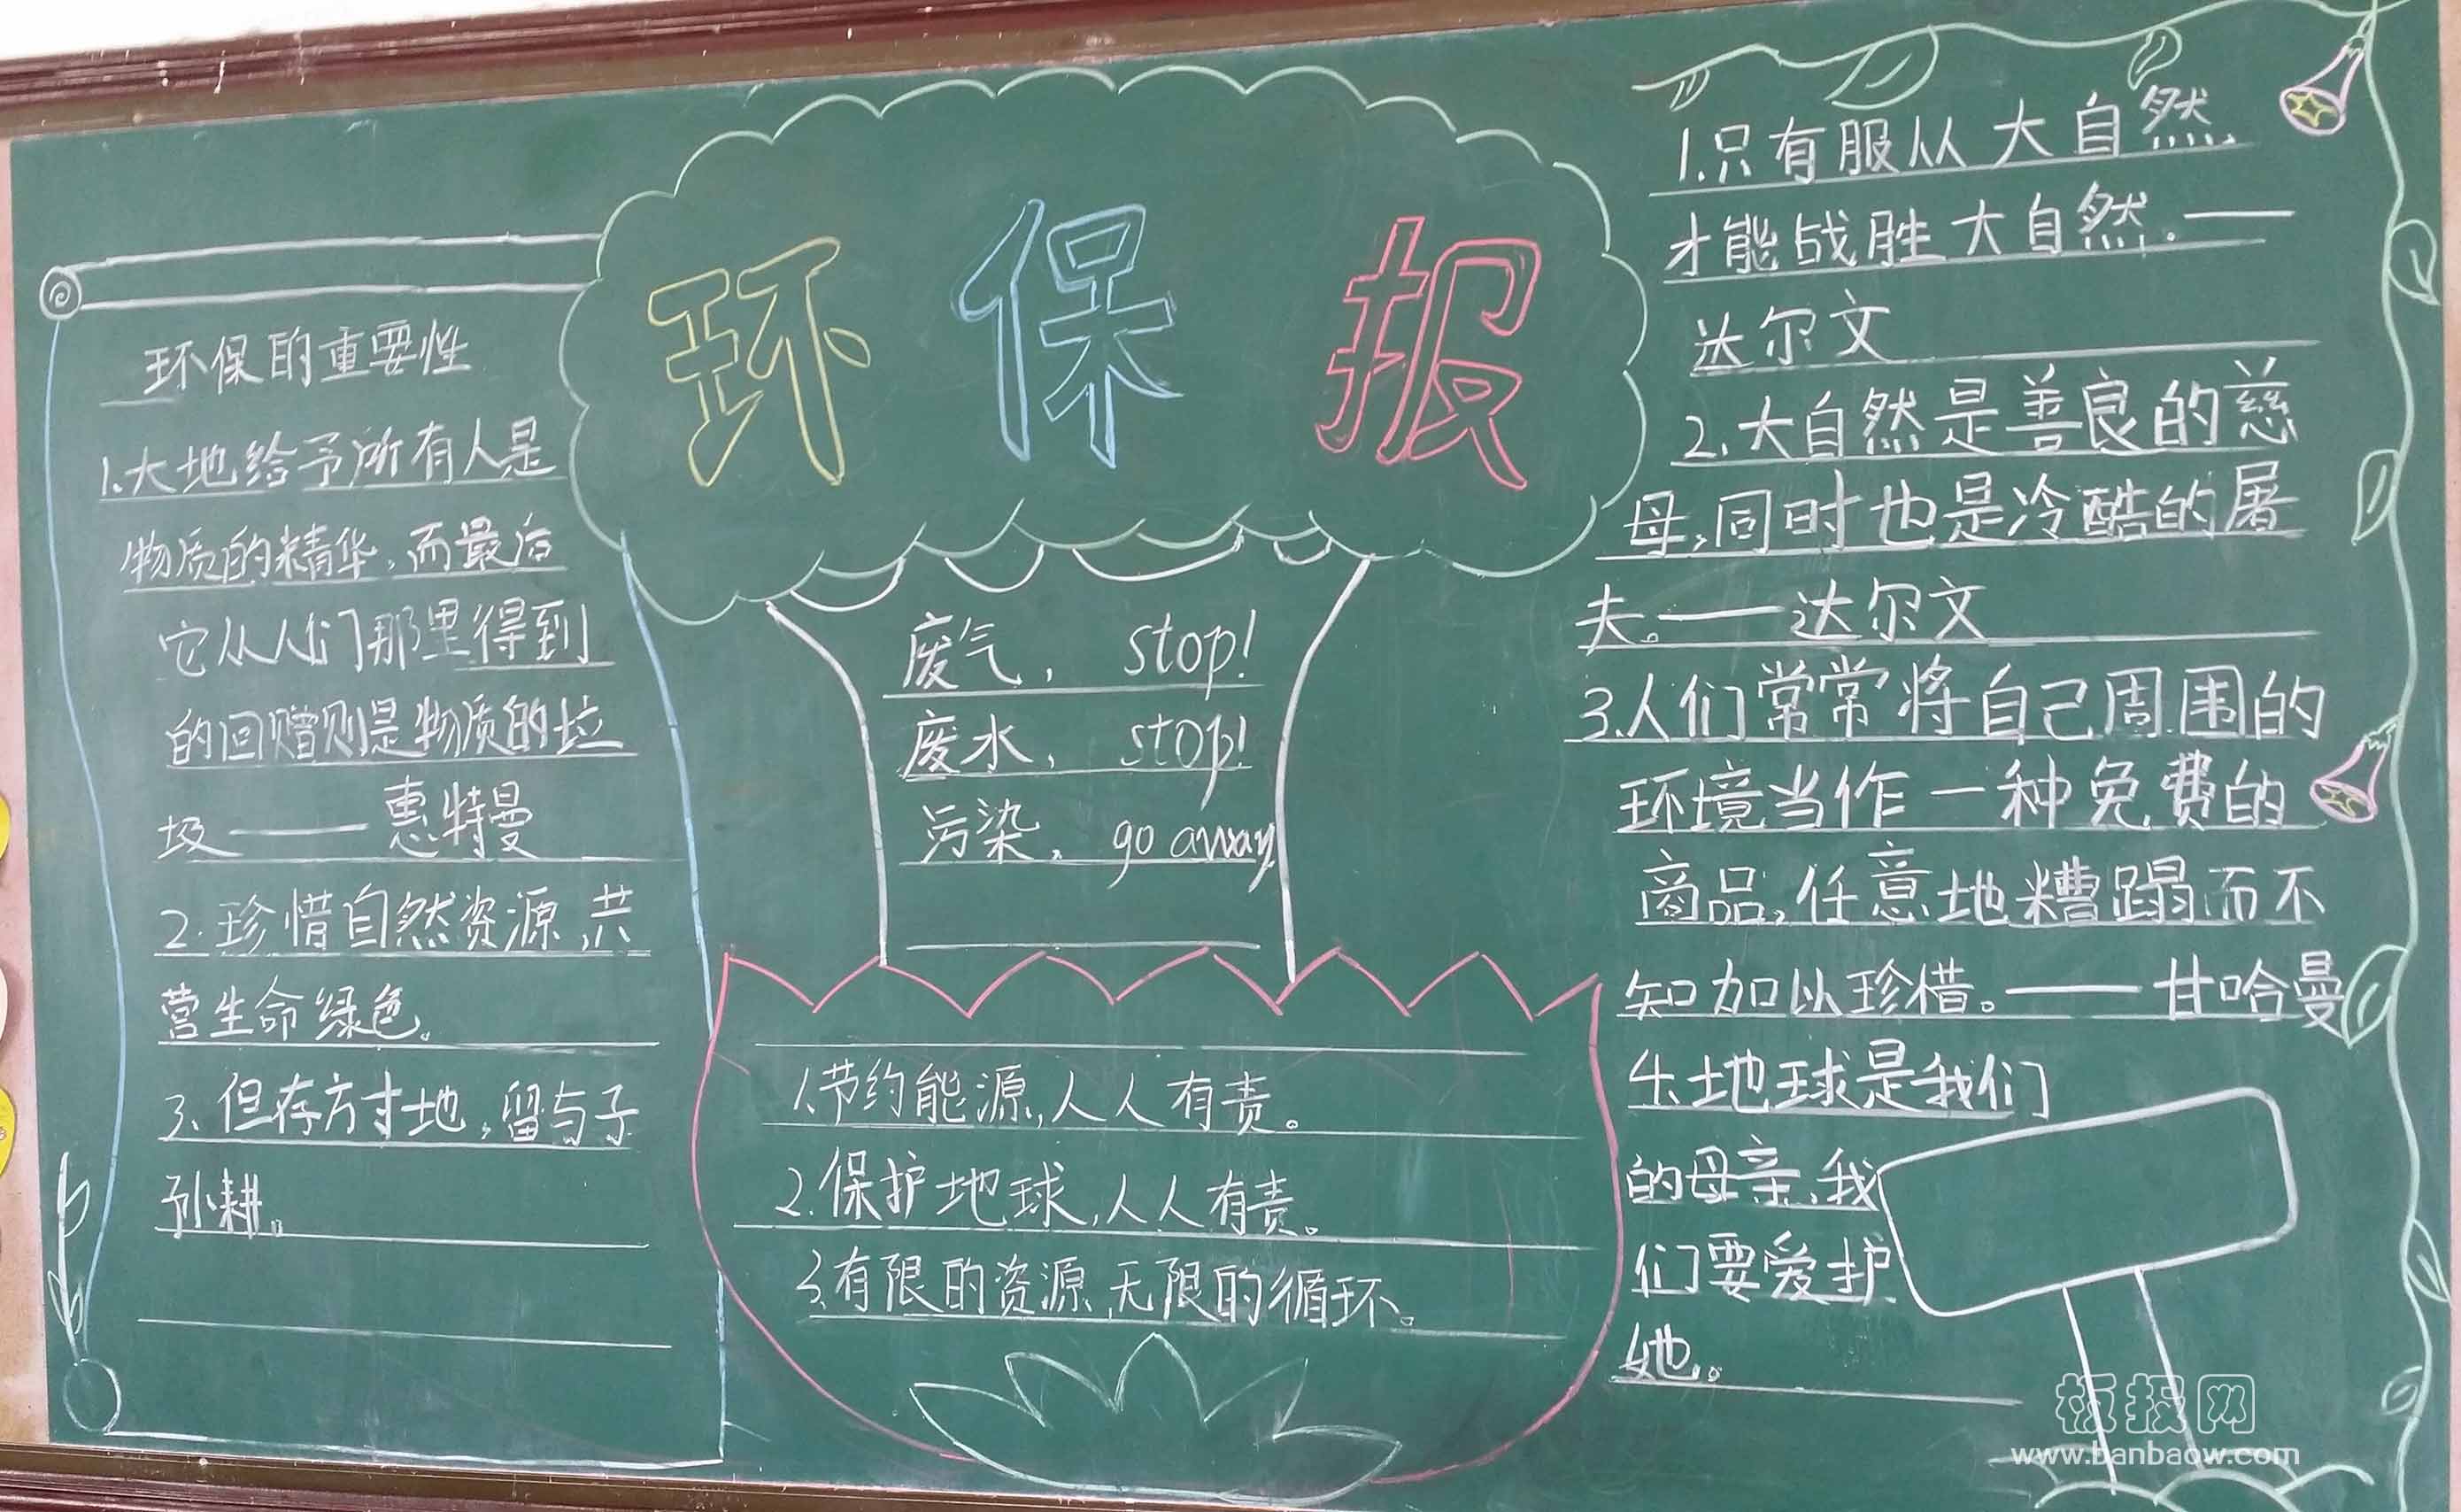 环保报
环保的重要性
1.大地给予所有人是
物质的精华,而最后
它从人们那里得到
的回赠则是物质的垃
圾——惠特曼
2.珍惜自然资源,共
营生命绿色。
3.但存方寸地,留与子
孙耕。
废气, stop!
废水, stop!
污染, go away
1.节约能源,人人有责。
2.保护地球,人人有责。
3.有限的资源,无限的循环。
1.只有服从大自然,
才能战胜大自然.——
达尔文
2.大自然是善良的慈
母,同时也是冷酷的屠
夫。——达尔文
3.人们常常将自己周围的
环境当作一种免费的
商品,任意地糟蹋而不
知加以珍惜。——甘哈曼
4.地球是我们
的母亲,我
们要爱护
她。
板报网
www.banbaow.com